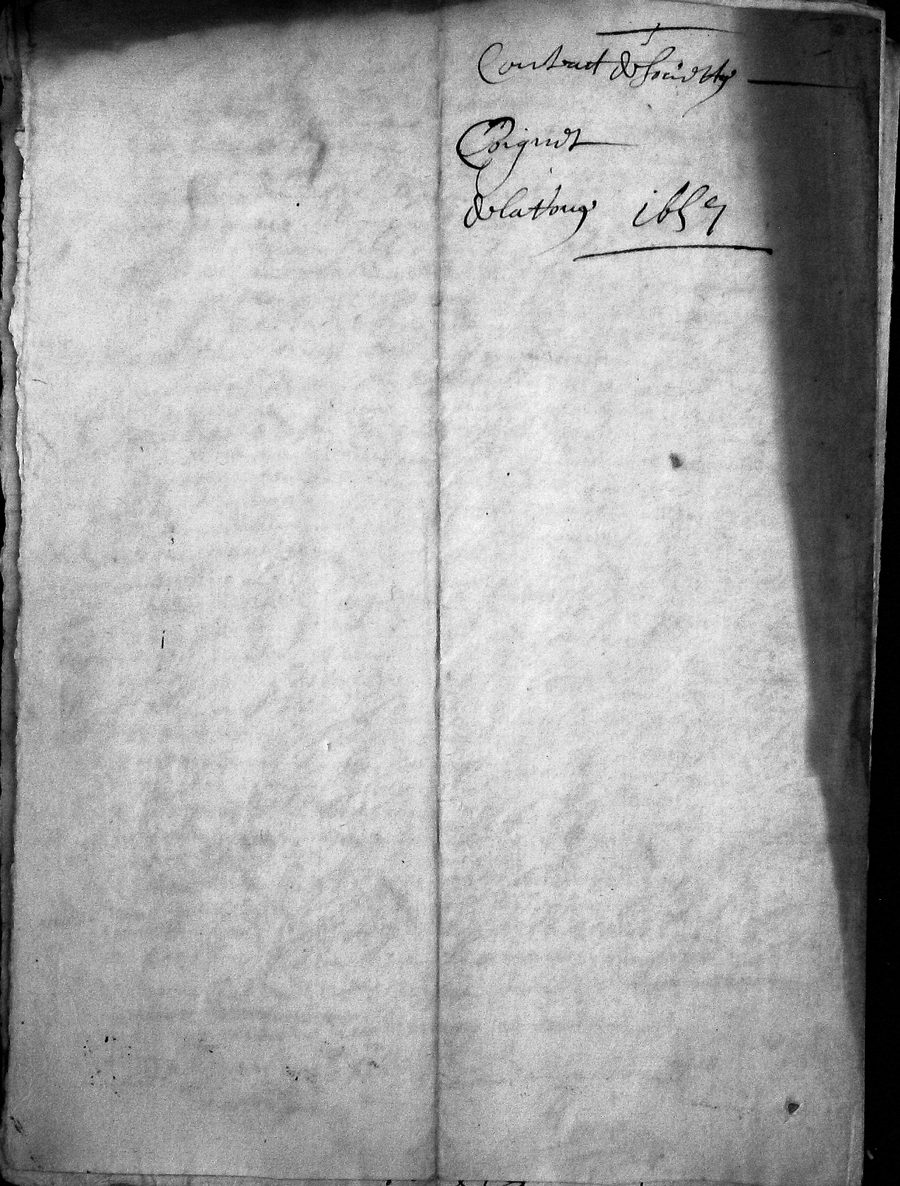 Contract de Sociétté
Coignet
delatour 1657